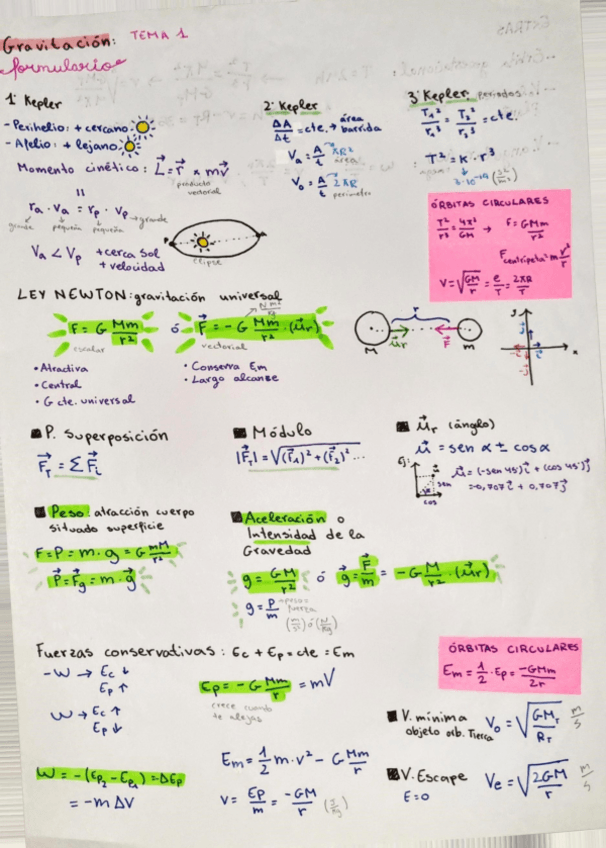 Gravitación: TEMA 1
formulario
1ª Kepler
- Perihelio: + cercano
- Afelio: + lejano
Momento cinético: L⃗ = r⃗ x m v⃗
producto vectorial
=
ra · va = rp · vp
grande pequeña pequeña grande
Va < Vp + cerca Sol
+ velocidad
elipse
2ª Kepler
ΔA/Δt = cte. → área barrida
Va = A/t πR²
área
Vo = A/t 2πR
perímetro
3ª Kepler. periodos
T₁²/r₁³ = T₂²/r₂³ = cte.
T² = K · r³
ÓRBITAS CIRCULARES
T²/r³ = 4π²/GM → F = GMm/r²
F centrípeta = m v²/r
V = √(GM/r) = e/T = 2πR/T
LEY NEWTON: gravitación universal
F = G Mm/r² ó F⃗ = - G Mm/r² · (u⃗r)
escalar vectorial
• Atractiva
• Central
• G cte. universal
• Conserva Em
• Largo alcanse
r
M u⃗r F⃗ m
y
x
P. Superposición
F⃗T = ΣF⃗i
Módulo
|F⃗T| = √((F⃗1)² + (F⃗2)² ...
u⃗r (ánglo)
u⃗ = sen α ± cos α
Ej:
sen
cos
u⃗ = (-sen 45)i⃗ + (cos 45)j⃗
= -0,707i⃗ + 0,707j⃗
Peso: atracción cuerpo
situado superficie
F = P = m · g = G mM/r²
P⃗ = F⃗g = m · g⃗
Aceleración o
Intensidad de la
Gravedad
g = GM/r² ó g⃗ = F⃗/m = - G M/r² · (u⃗r)
g = P/m → peso = fuerza
(m/s²) ó (N/Kg)
Fuerzas conservativas: Ec + Ep = cte = Em
-W → Ec ↓
Ep ↑
W → Ec ↑
Ep ↓
Ep = - G Mm/r = mV
crece cuando
te alejas
ÓRBITAS CIRCULARES
Em = 1/2 · Ep = -GMm/2r
V. mínima
objeto orb. Tierra
Vo = √(GMT/RT) m/s
W = - (Ep2 - Ep1) = ΔEp
= -m ΔV
Em = 1/2 m · v² - G Mm/r
V = Ep/m = -GM/r (J/Kg)
V. Escape
E = 0
Ve = √(2GM/r) m/s